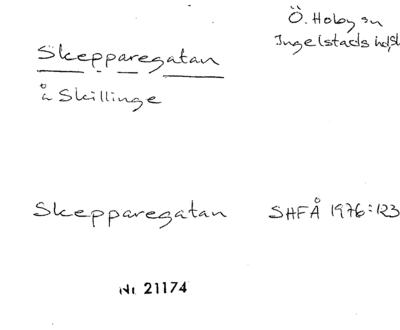 Ö. Hoby sn
Ingelstads hd, Sk
Skepparegatan
å Skillinge
Skepparegatan SHFÅ 1976:123
Nr 21174